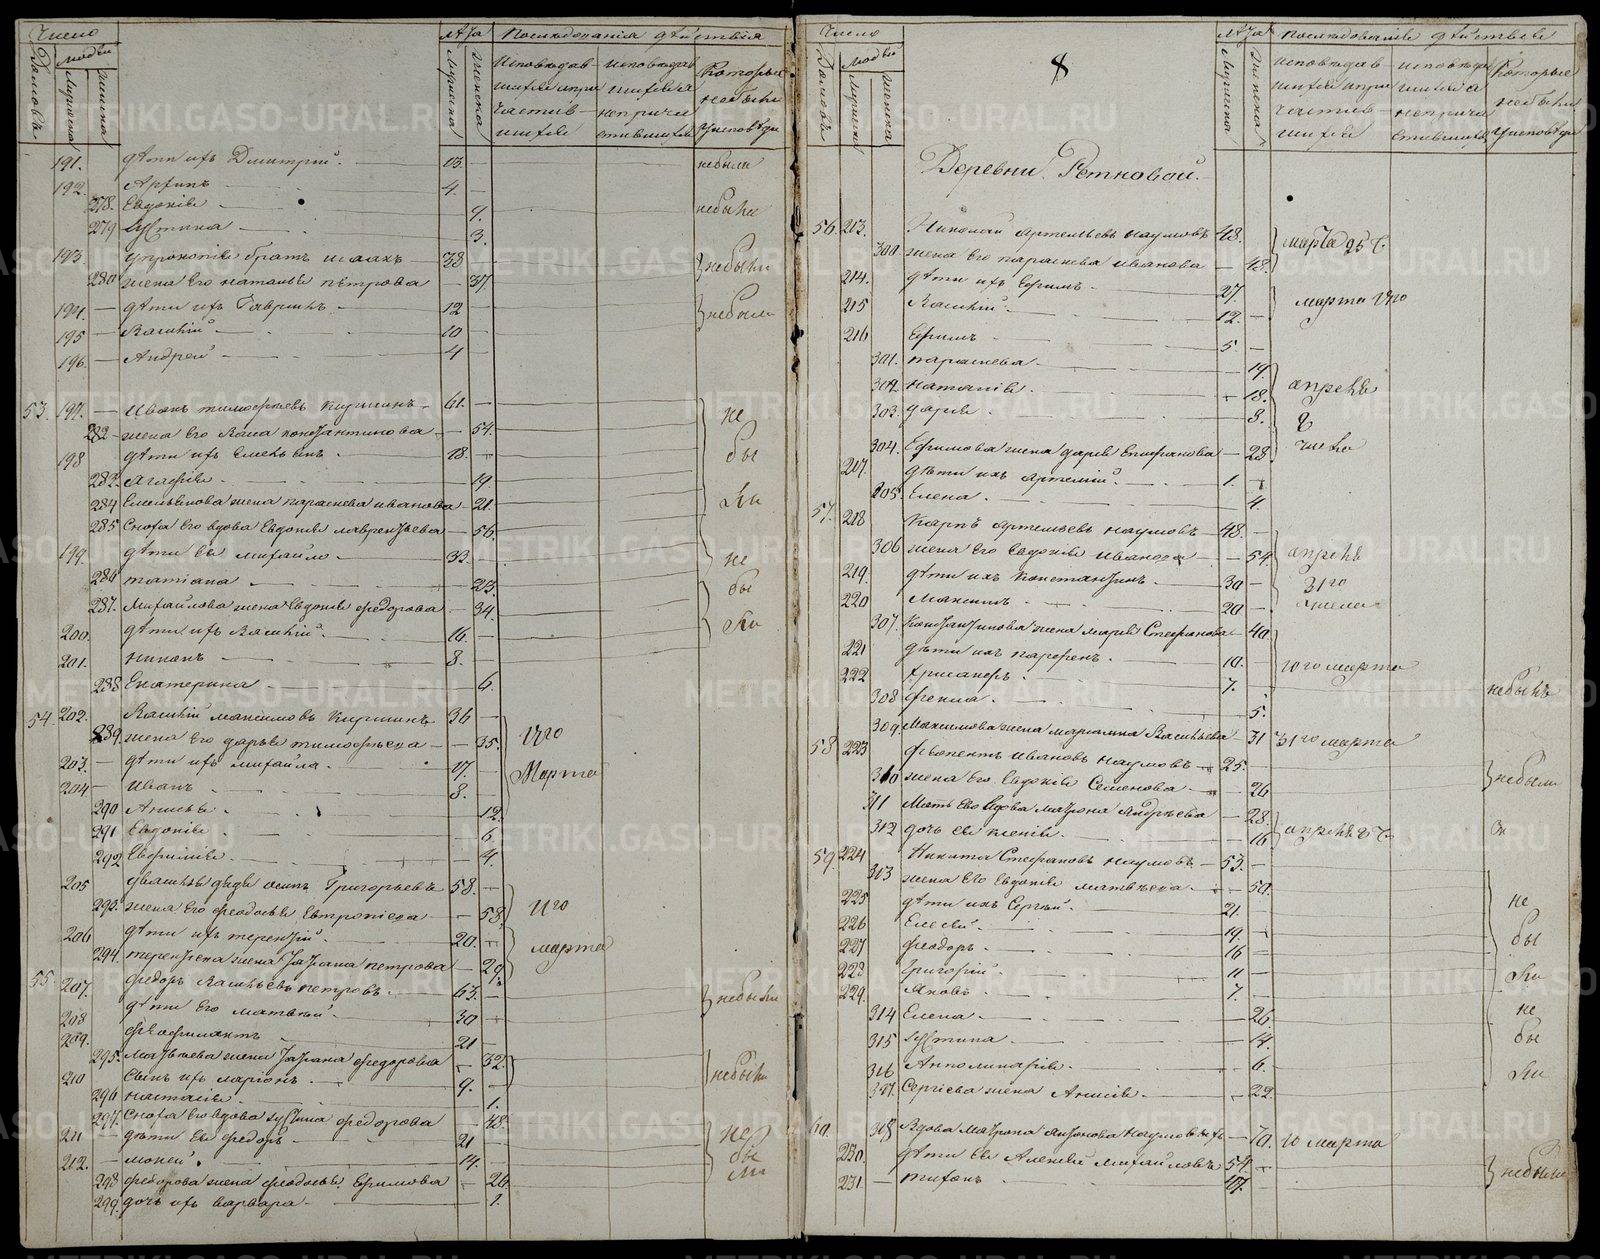 Число
Домовъ
людей
Мужеска
Женска
Лѣта
Мужеска
Женска
Последованія дѣйствія
исповѣдав-
шихся и при-
частив-
шихся
исповѣдав-
шихся а
не прича-
стившихся
Которые
не были
у исповѣди
191. дѣти ихъ Дмитрий. 13. не были
192. Архипъ 4.
278. Евдокія 9. не были
279 Устина 3.
193. Прокопія братъ Исаакъ 38 не были
280 жена его Наталья Петрова 37.
194. дѣти ихъ Гавриилъ 12 не были
195 Василій 10
196. Андрей 4
53. 197. Иванъ Тимофеевъ 61. не
282 жена его Константинова 54. бы
198 дѣти ихъ Емельянъ 18. ли
283. Агафія 19
284 Емельянова жена Параскева Иванова 21.
285 Сноха его вдова Евдокія Лаврентьева 56.
199. дѣти ея Михайло 33. не
286 Татіана 23. бы
287. Михайлова жена Евдокія Федорова 34. ли
200. дѣти ихъ Василій. 16.
201. Никонъ 8.
288 Екатерина 6.
54. 202. Василий Максимовъ 36
289. жена его Дарья Тимофѣева 35.
203. дѣти ихъ Михаила 17. Марта
204 Иванъ 8.
290 Анисья 12.
291 Евдокія 6
292 Евфимія 4.
205 дядя Осипъ Григорьевъ 58.
293. жена его Феодосья 58.
206 дѣти ихъ Терентій. 20. марта
294 Терентьева жена Татіана Петрова 29.
55. 207. Федоръ Васильевъ Петровъ 63. не были
208 дѣти его Матвѣй 30
209. Феофилактъ 21
295. Матвеева жена Татіана Федорова 32. не были
210 Сынъ ихъ Ларіонъ 9.
296 Наталія 1.
297. Сноха его вдова Устина Федорова 48.
211 дѣти ея Федоръ 21 не
212. Мокей. 14. бы
298 Федорова жена Феодосья Ефимова 26. ли
299. дочь ихъ Варвара 1.
Число
Домовъ
людей
Мужеска
Женска
8
Лѣта
Мужеска
Женска
Последованіе дѣйствіе
исповѣдав-
шихся и при-
частив-
шихся
исповѣдав-
шихся а
не прича-
стившихся
Которые
не были
у исповѣди
Деревни Ретковой.
56. 213. Николай Артемьевъ Наумовъ 48. марта 25 Ч.
300. жена его Параскева Иванова 48.
214. дѣти ихъ Ефимъ 27. марта
215 Василій 12.
216 Ефимъ 5.
301. Параскева 19.
302. Наталія 18. апрѣля
303. Дарья 8.
304. Ефимова жена Дарья Епифанова 28 числа
217. дѣти ихъ Артемій. 1.
305. Елена. 4.
57. 218 Карпъ Артемьевъ Наумовъ 48.
306 жена его Евдокія Иванова 54. апрѣля
219. дѣти ихъ Константинъ 30 31го
220 Максимъ 20 числа
307. Константинова жена Марія Стефанова 40
221 дѣти ихъ Парфенъ. 10. 10го марта
222 Хрисанфъ. 7. не былъ
308 Фекла 5.
309. Максимова жена Марьяна Васильева 31 31го марта
58. 223 Ивановъ Наумовъ 25. не были
310 жена его Евдокія Семенова 26
311 Мать его вдова Матрона Андреева 28. апрѣля 8 Ч.
312 дочь ея Ксенія 16
59. 224 Никита Стефановъ Наумовъ 53.
313 жена его Евдокія Матвѣева 50.
225 дѣти ихъ Сергѣй. 21. не
226 Елесей. 19. бы
227 Феодоръ 16 ли
228 Григорій 11
229. Яковъ 7.
314 Елена 26. не
315 Устина 14. бы
316 Апполинарія 6. ли
317. Сергіева жена Анисія 22.
60. 318 Вдова Матрона Антонова Наумовыхъ 70. 10 марта
230. дѣти ея Алексей Михайловъ 54. не были
231 Тихонъ 47.
METRIKI.GASO-URAL.RU